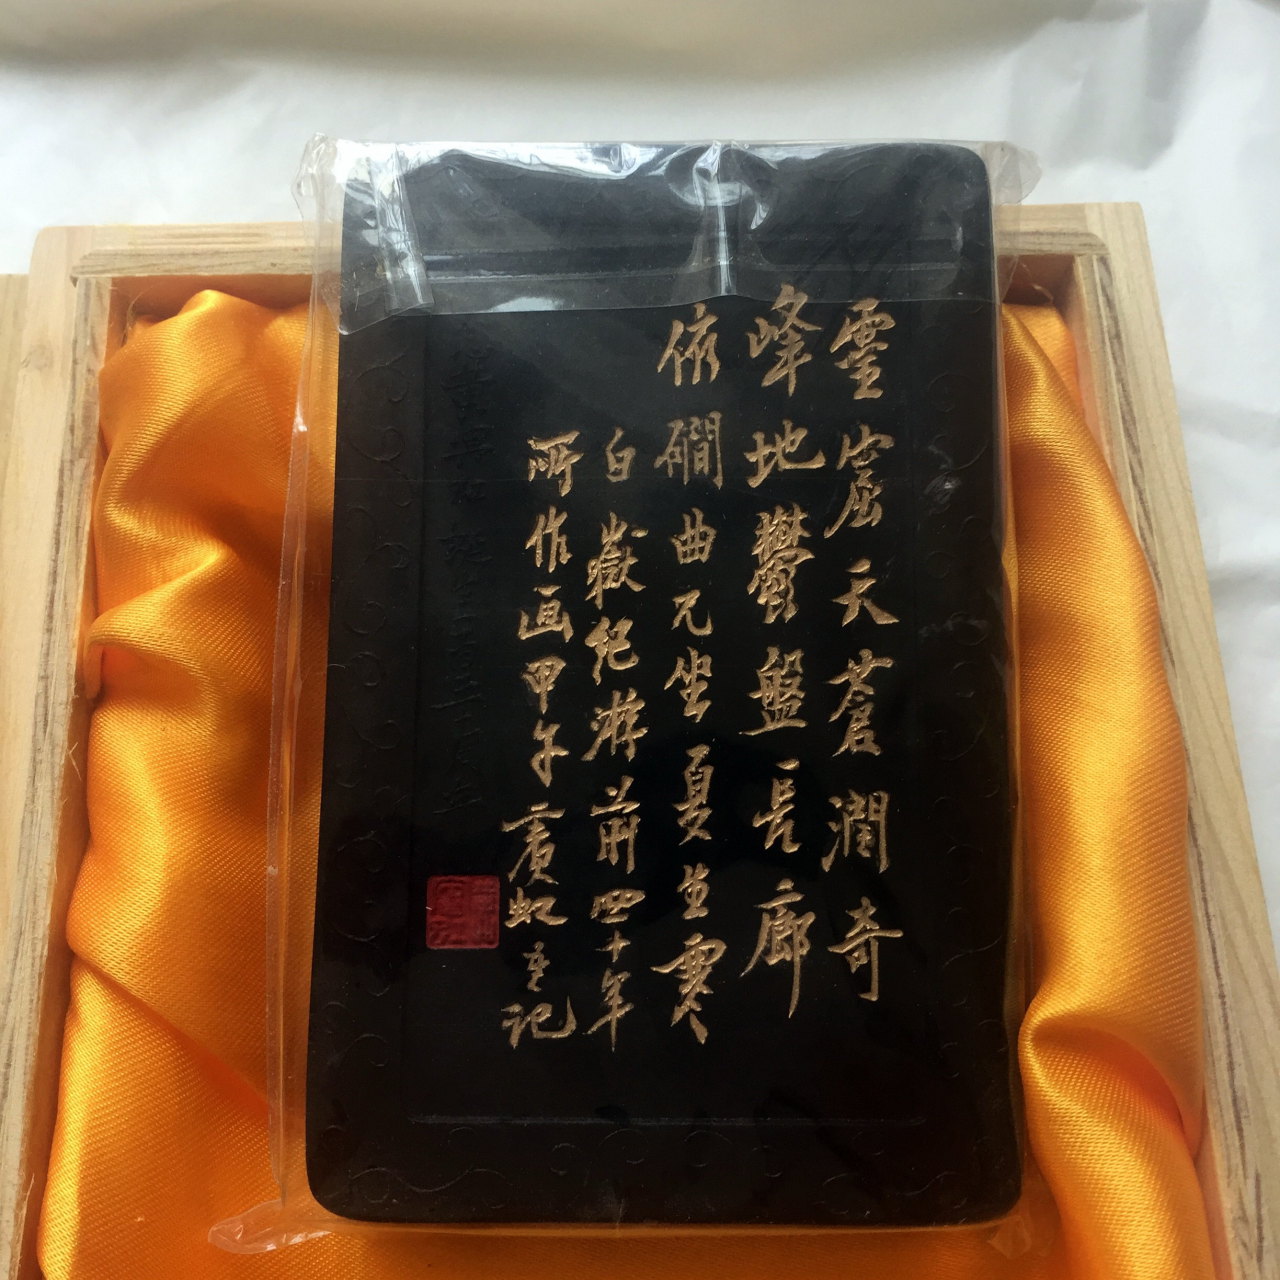 靈窟天蒼潤奇
峰地鬱盤長廊
依磵曲兀坐夏生寒
白嶽紀游前四十年
所作画甲午賓虹記